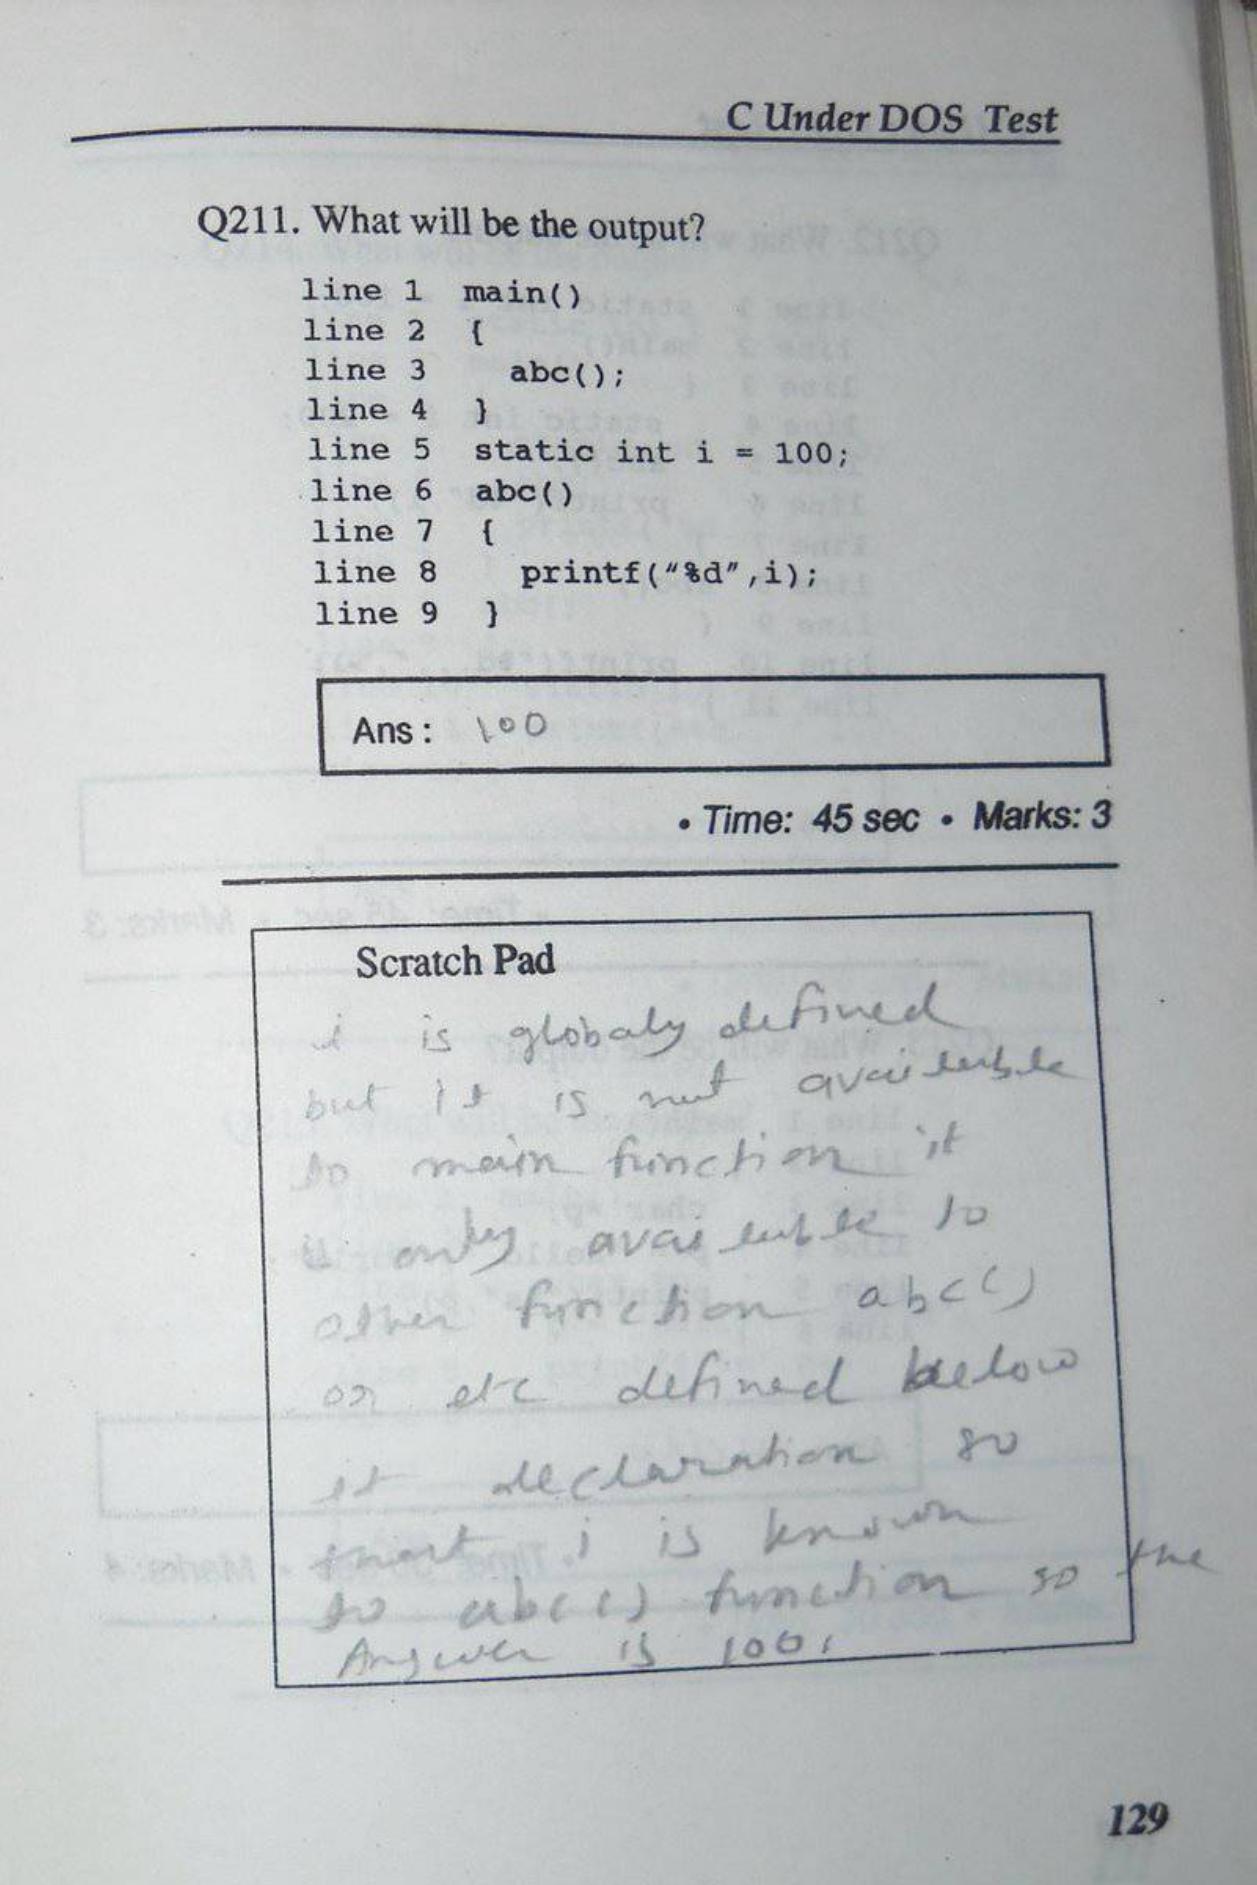 C Under DOS Test
Q211. What will be the output?
line 1 main()
line 2 {
line 3 abc();
line 4 }
line 5 static int i = 100;
line 6 abc()
line 7 {
line 8 printf("%d",i);
line 9 }
Ans : 100
• Time: 45 sec • Marks: 3
Scratch Pad
i is globaly defined
but it is not available
to main function it
is only available to
other function abc()
or etc defined below
it declaration so
that i is known
to abc() function so the
Answer is 100.
129